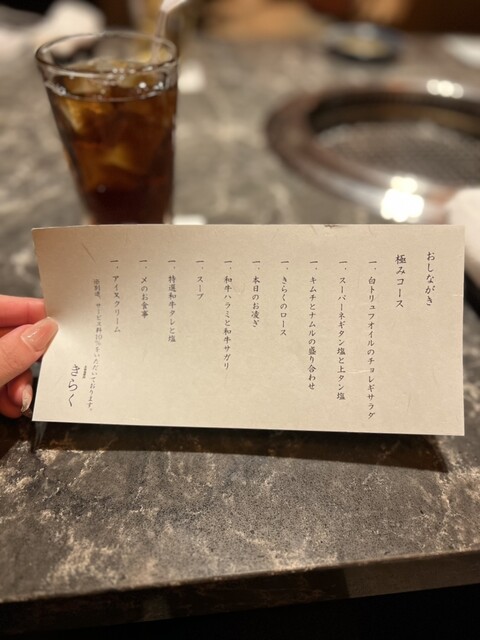 おしながき
極みコース
一、白トリュフオイルのチョレギサラダ
一、スーパーネギタン塩と上タン塩
一、キムチとナムルの盛り合わせ
一、きらくのロース
一、本日のお凌ぎ
一、和牛ハラミと和牛サガリ
一、スープ
一、特選和牛タレと塩
一、〆のお食事
一、アイスクリーム
サービス料10%をいただいております。
きらく